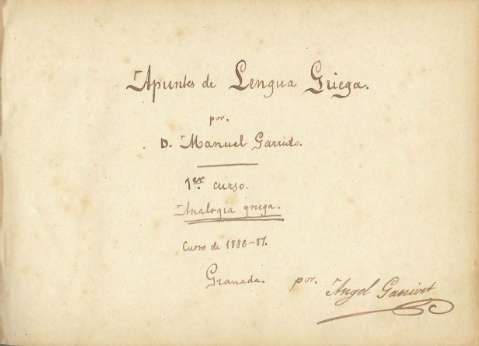 Apuntes de Lengua Griega.
por.
D. Manuel Garrido.
1er curso.
Analogia griega.
Curso de 1886-87.
Granada. por. Angel Ganivet